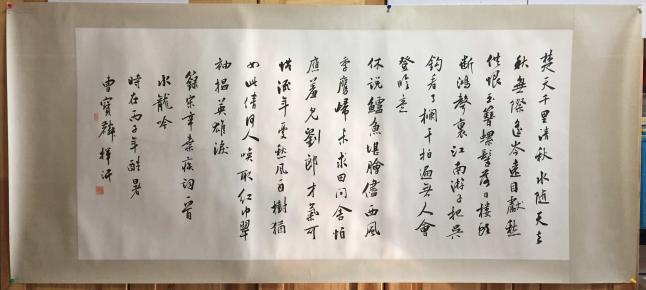 楚天千里清秋水随天去
秋無際遥岑遠目獻愁
供恨玉簪螺髻落日樓頭
斷鴻聲裏江南游子把吴
鈎看了欄干拍遍無人會
登临意
休說鱸魚堪膾儘西風
季鷹歸未求田問舍怕
應羞見劉郎才氣可
惜流年憂愁風雨樹猶
如此倩何人喚取紅巾翠
袖揾英雄淚
錄宋辛棄疾詞一首
水龍吟
時在丙子年酷暑
曹寶麟揮汗